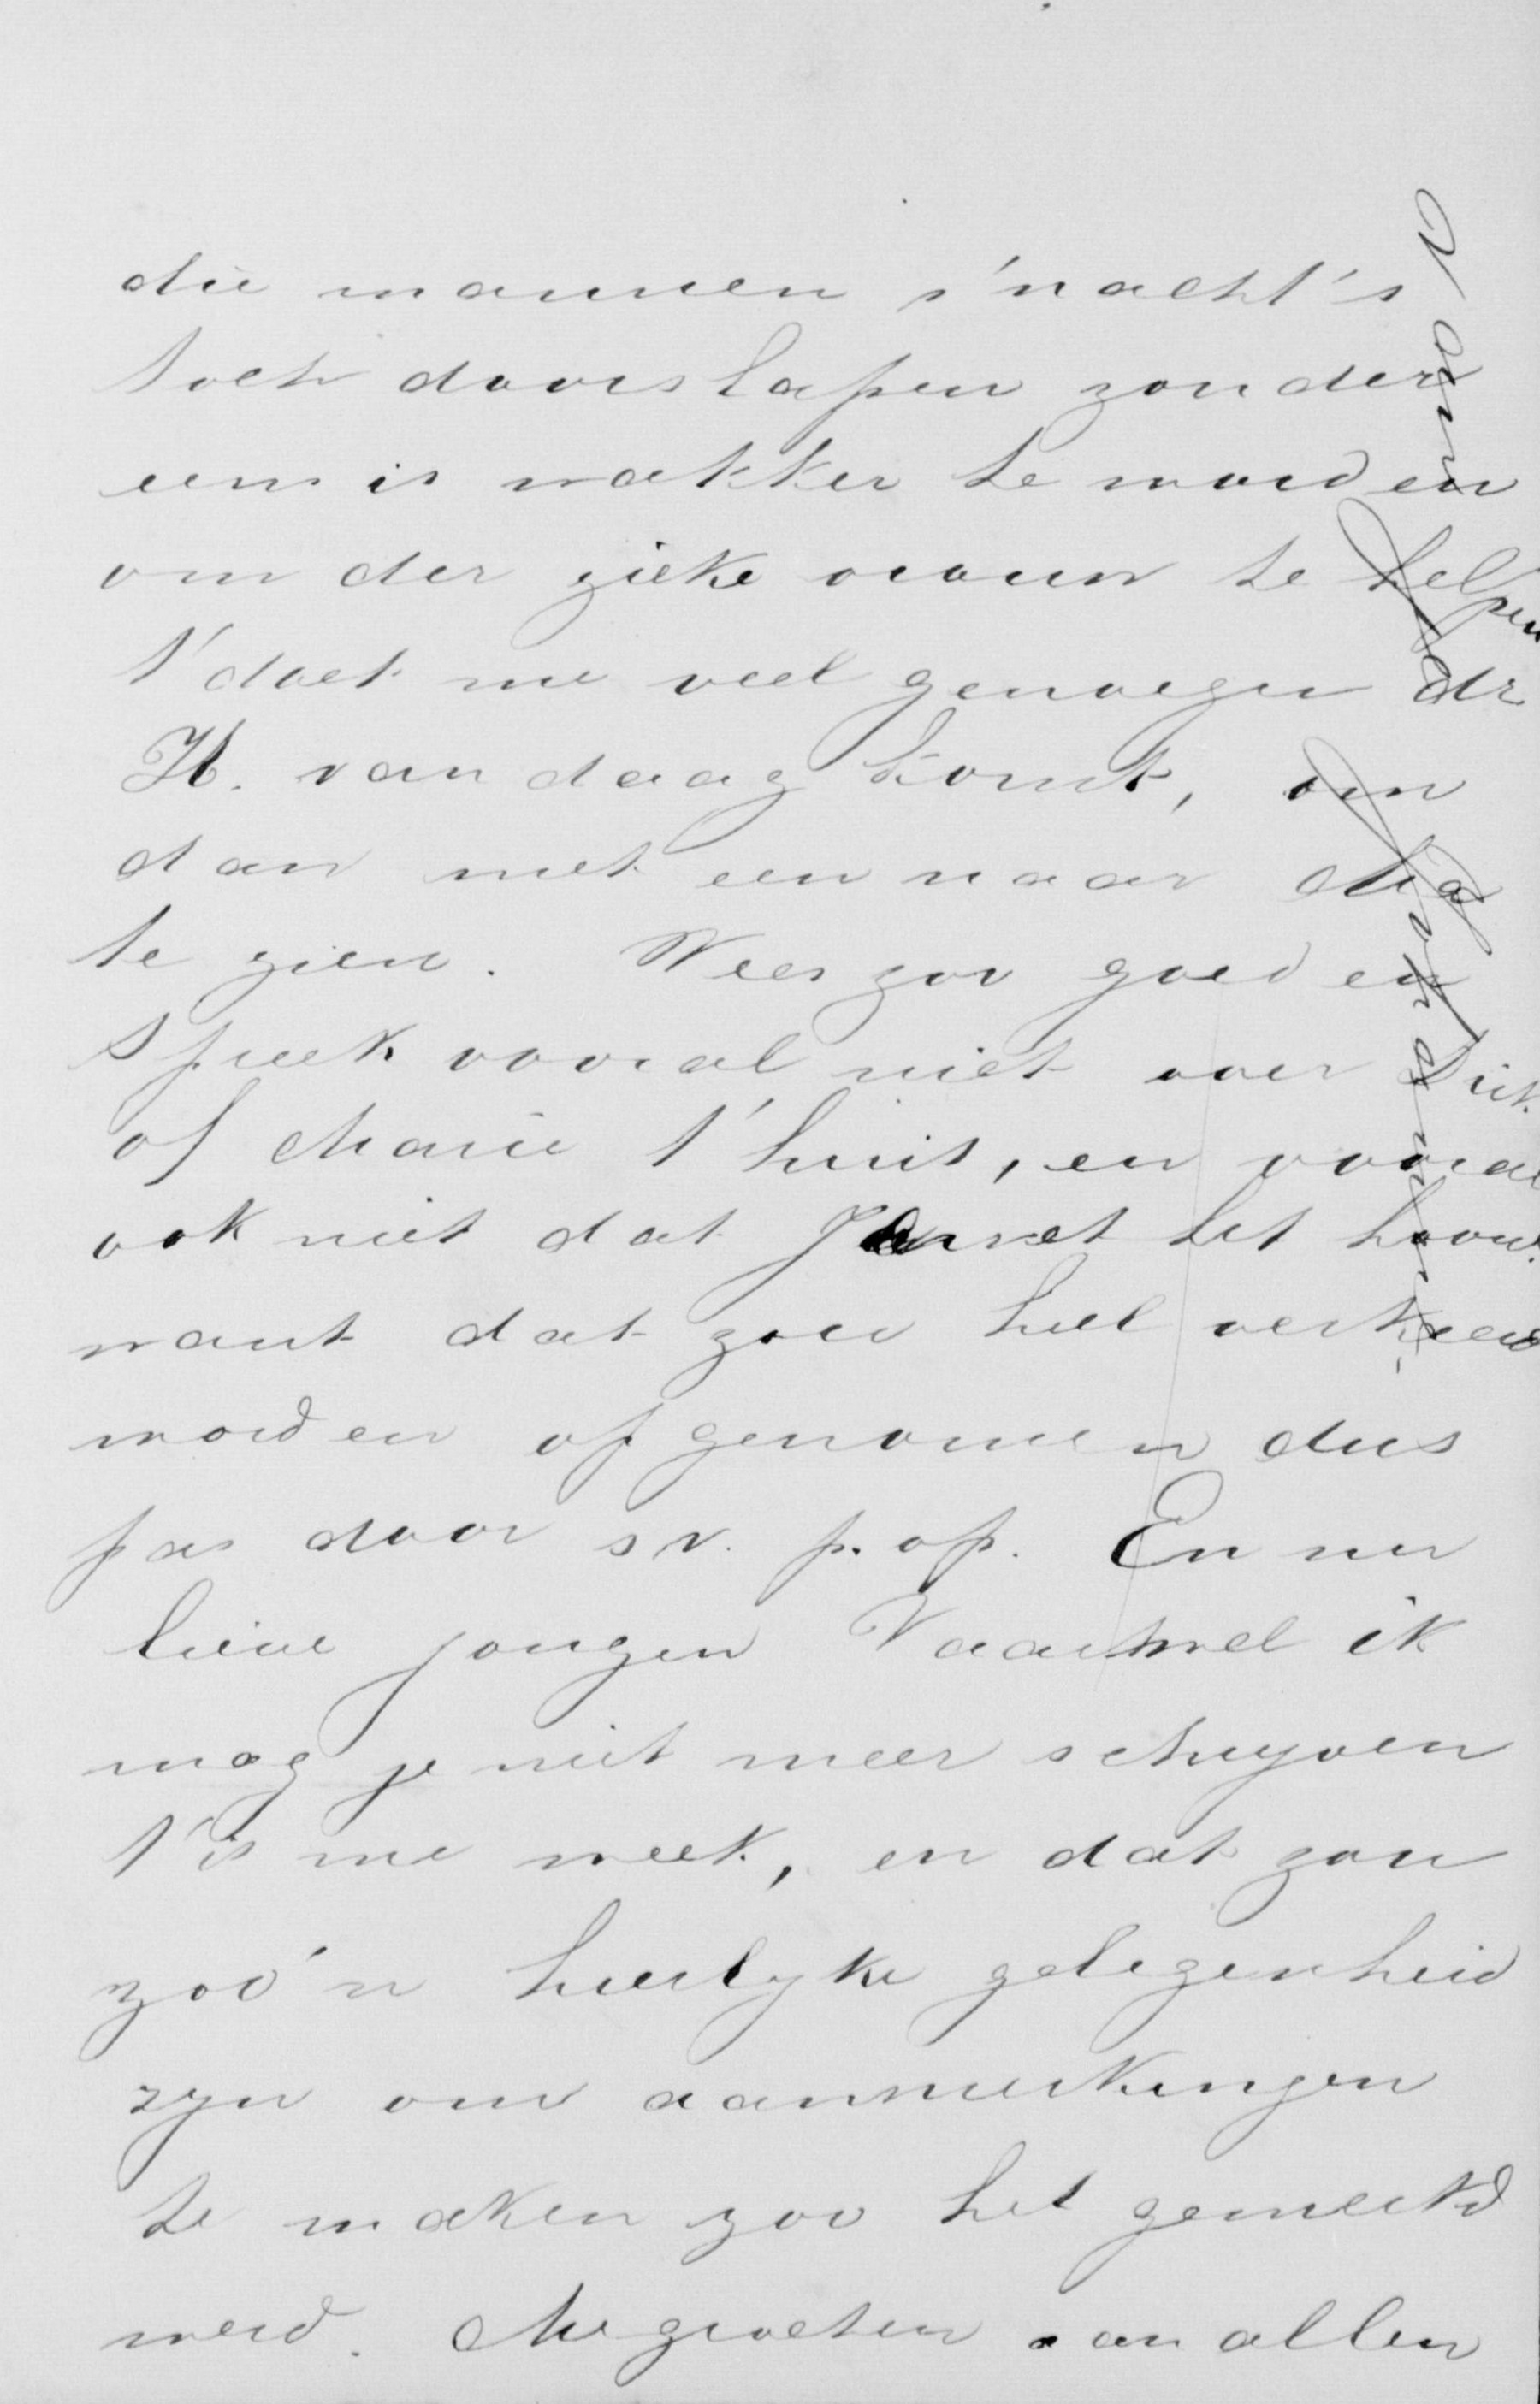 die mannen s'nacht's
toch doorslapen zonder
eens is wakker te worden
om der zieke vrouw te helpen
t'doet me veel genoegen dr
H. van daag komt, om
dan met een naar Ma
te zien. Wees zoo goed en
spreek vooral niet over Dirk
of Marie t'huis, en vooral
ook niet dat Jansct het hoord.
want dat zou heel verkeerd
worden opgenomen dus
pas daar s.v.p. op. En nu
lieve jongen Vaarwel ik
mag je niet meer schryven
t'is me week, en dat zou
zoo'n heerlyke gelegenheid
zyn om aanmerkingen
te maken zoo het gemerkt
werd. Me groeten aan allen
Vooral